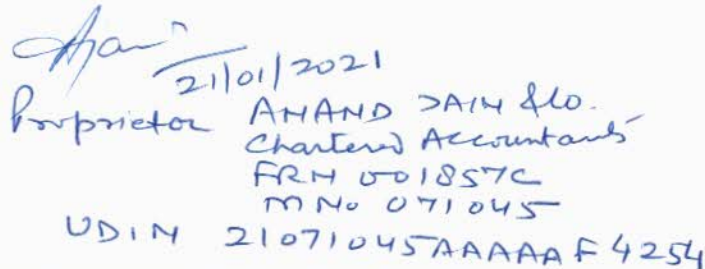 21/01/2021
Proprietor ANAND JAIN & Co.
Chartered Accountants
FRN 001857C
M No 071045
UDIN 21071045AAAAAF4254